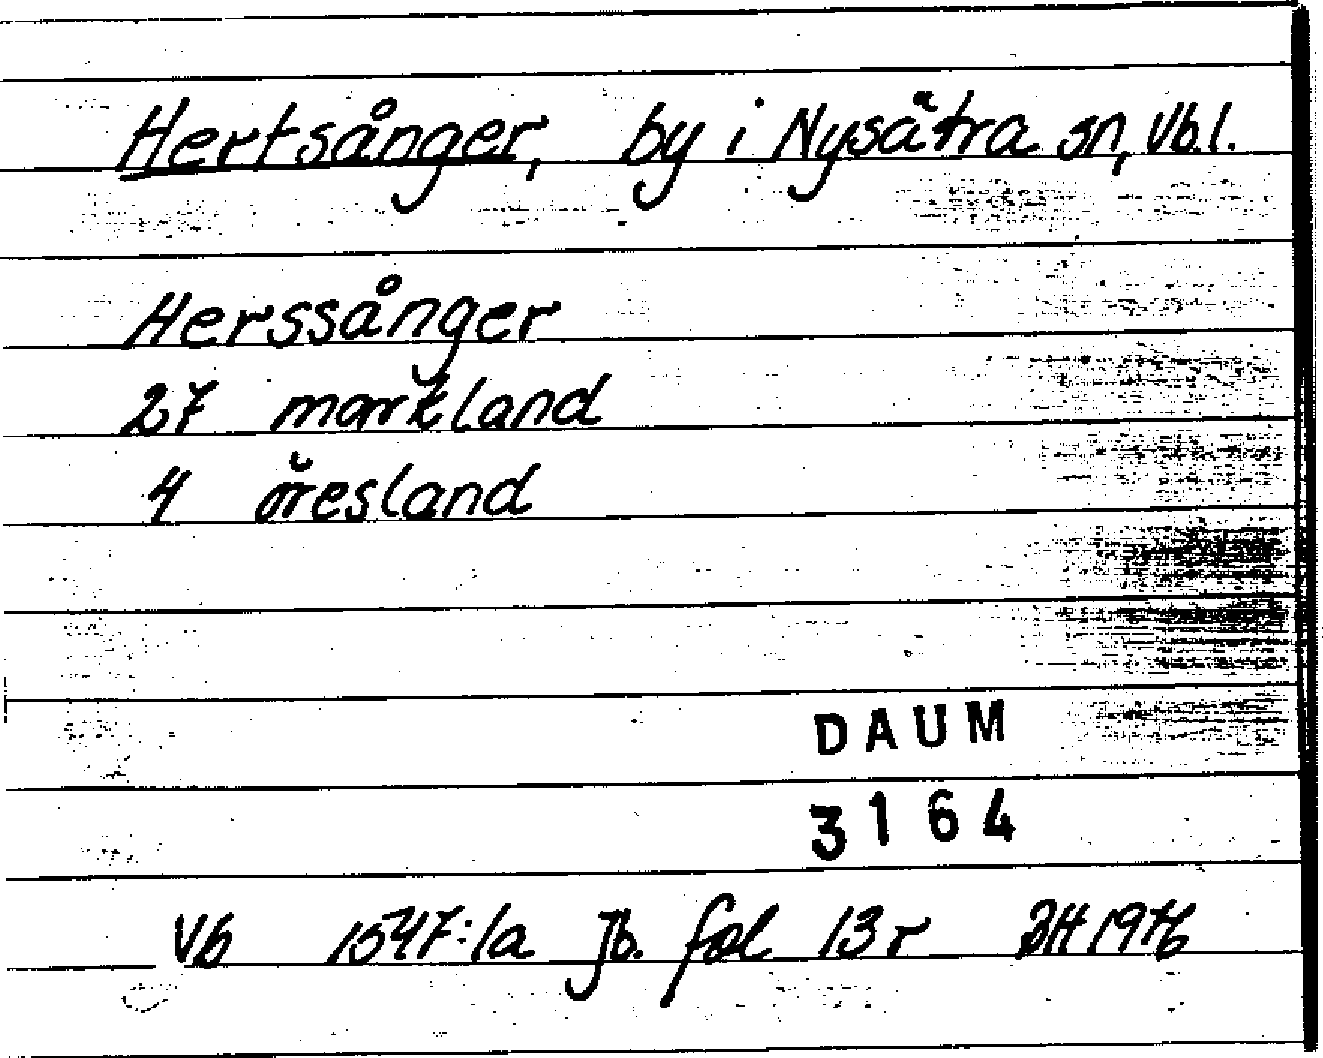 Hertsånger, by i Nysätra sn, Vb.l.
Herssånger
27 markland
4 öresland
DAUM
3164
Vb 1547:1a Jb. fol 13 r BH 1976